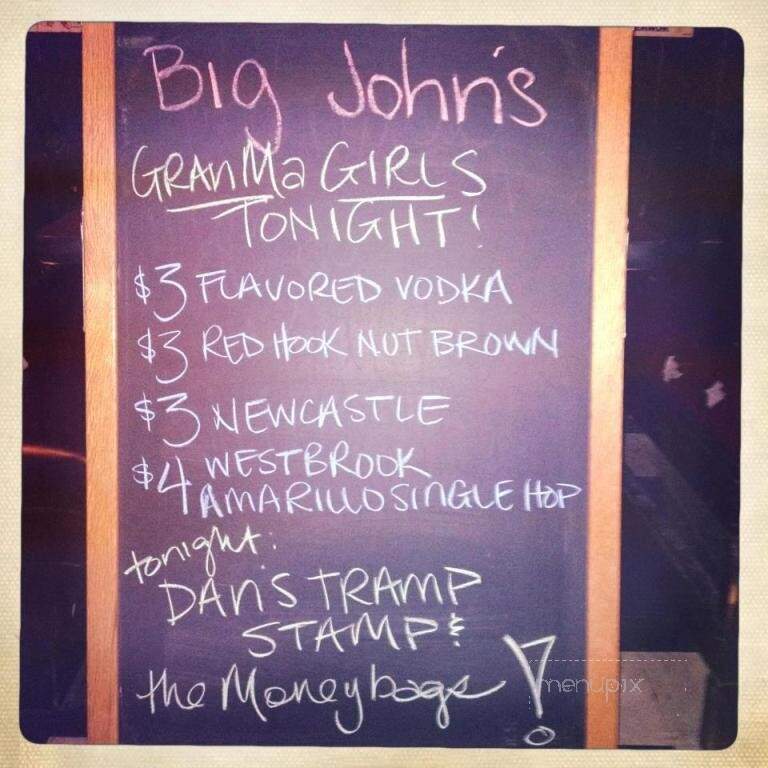 Big John's
GRANMa GIRLS
TONIGHT!
$3 FLAVORED VODKA
$3 RED HOOK NUT BROWN
$3 NEWCASTLE
$4 WESTBROOK
AMARILLO SINGLE HOP
tonight:
DAN'S TRAMP
STAMP &
the Moneybags!
menupix